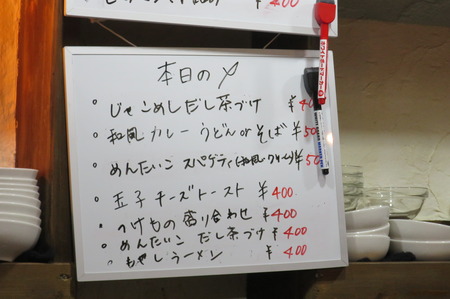 ¥400
本日の〆
・じゃこめしだし茶づけ ¥4
・和風カレーうどん or そば ¥50
・めんたいこ スパゲティ(和風・クリーム) ¥50
・玉子チーズトースト ¥400
・つけもの盛り合わせ ¥400
・めんたいこ だし茶づけ ¥400
・もやしラーメン ¥400